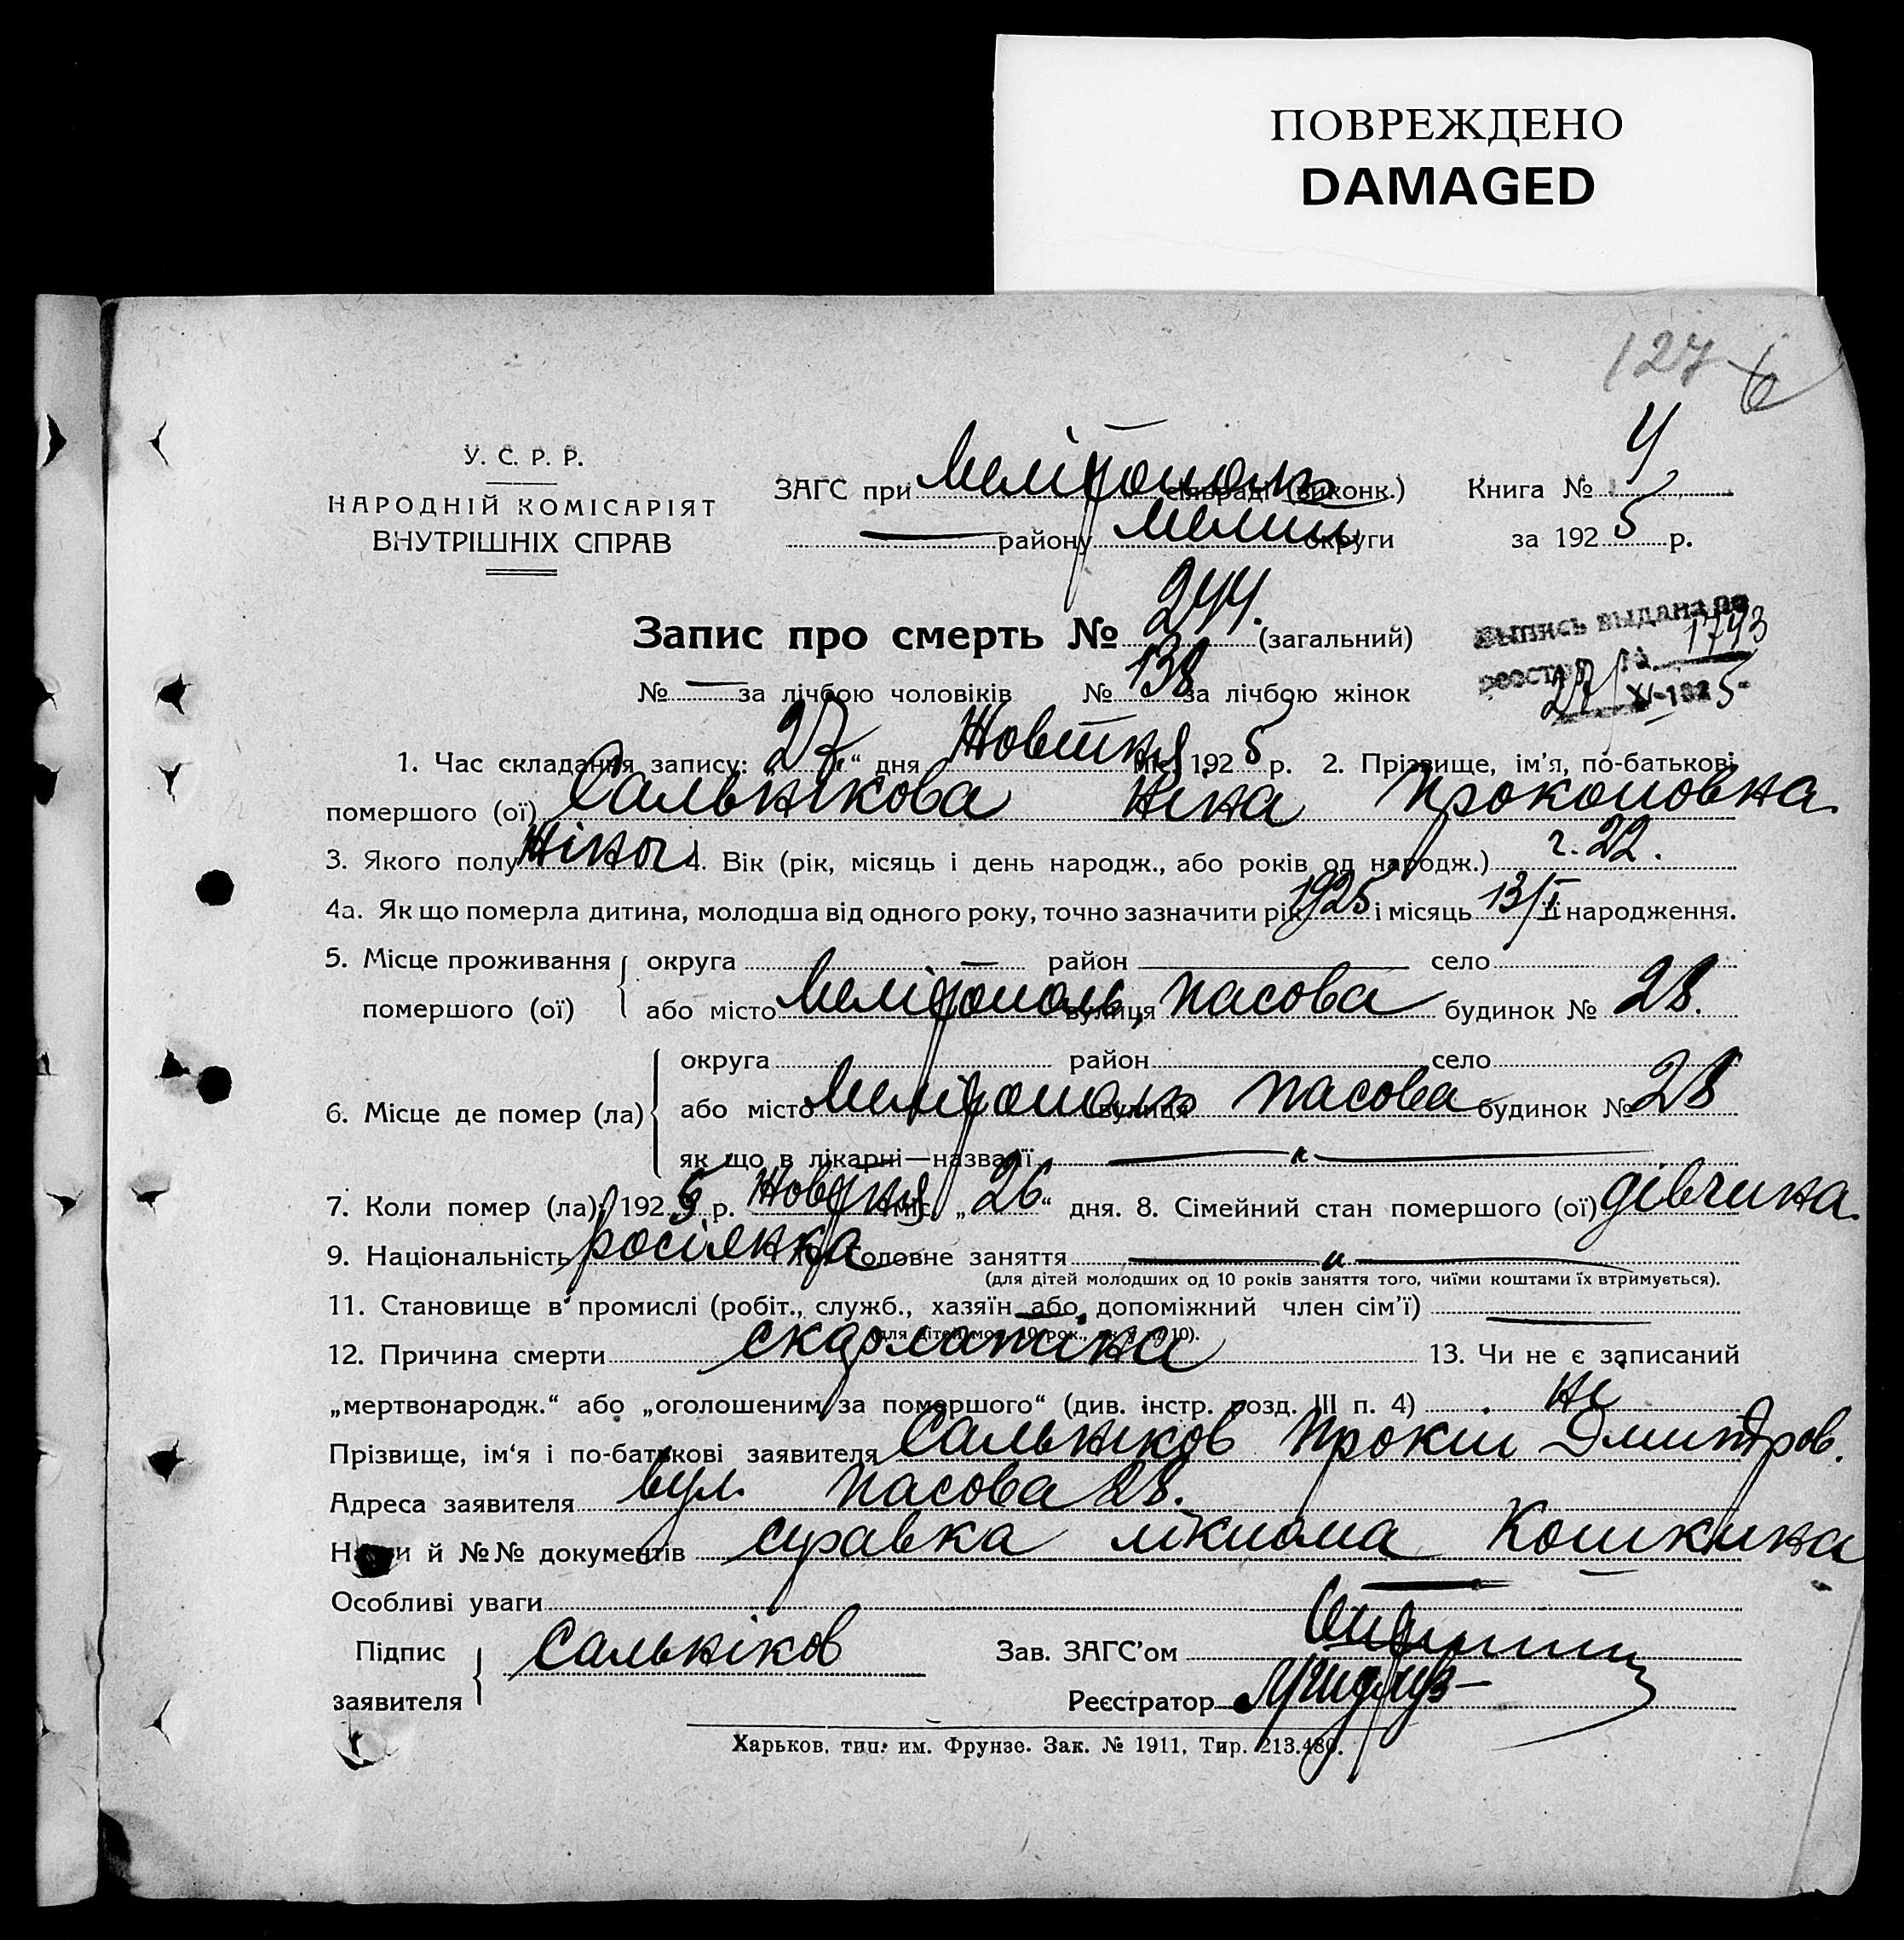 ПОВРЕЖДЕНО
DAMAGED
127
У. С. Р. Р.
НАРОДНІЙ КОМІСАРІЯТ
ВНУТРІШНІХ СПРАВ
ЗАГС при Мелітополь сільраді (виконк.) Книга № 4
— району Меліт округи за 1925 р.
Запис про смерть № 244. (загальний)
Выпись выдана по
реестру № 1793
27/XI-1925
№ — за лічбою чоловіків № 138 за лічбою жінок
1. Час складання запису: „27“ дня Жовтня міс. 1925 р. 2. Прізвище, ім’я, по-батькові
помершого (ої) Сальнікова Ніна Прокоповна
3. Якого полу Жіноч 4. Вік (рік, місяць і день народж., або років од народж.) г. 22.
4а. Як що померла дитина, молодша від одного року, точно зазначити рік 1925 і місяць 13/I її народження.
5. Місце проживання помершого (ої) округа — район село
або місто Мелітополь, вулиця Пасова будинок № 28.
6. Місце де помер (ла) округа район село
або місто Мелітополь вулиця Пасова будинок № 28
як що в лікарні—назва її — „ —
7. Коли помер (ла) 1925 р. Жовтня міс. „26“ дня. 8. Сімейний стан помершого (ої) дівчина
9. Національність росіянка 10. Головне заняття — „ —
(для дітей молодших од 10 років заняття того, чиїми коштами їх втримується).
11. Становище в промислі (робіт., служб., хазяїн або допоміжний член сім’ї) —
(для дітей мол. 10 рок., як у п. 10).
12. Причина смерти скарлатіна 13. Чи не є записаний
„мертвонародж.“ або „оголошеним за помершого“ (див. інстр. розд. III п. 4) ні
Прізвище, ім‘я і по-батькові заявителя Сальніков Прокіп Дмитров.
Адреса заявителя вул. Пасова 28.
Назви й №№ документів справка лікпома Кошкина
Особливі уваги —
Підпис заявителя Сальніков Зав. ЗАГС’ом
Реєстратор
Харьков, тип. им. Фрунзе. Зак. № 1911, Тир. 213.480.